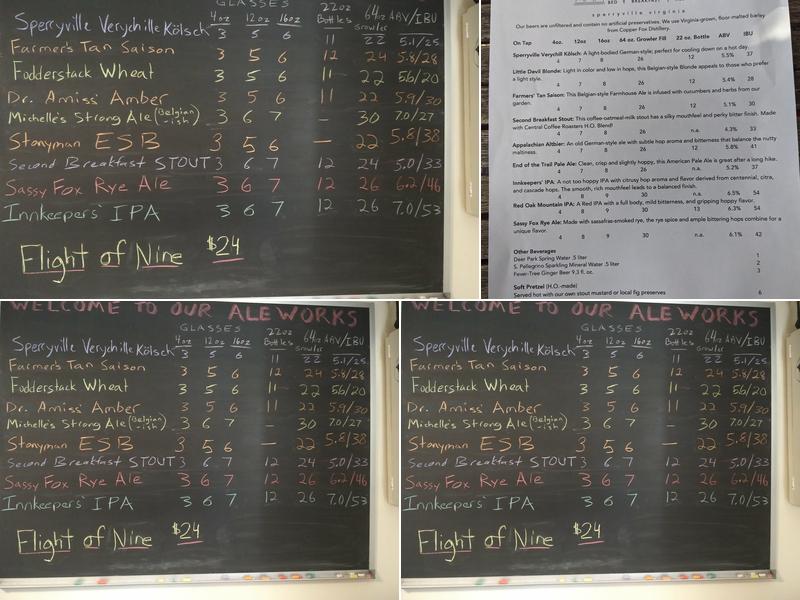 GLASSES
4oz 12oz 16oz 22oz Bottles 64oz Growler ABV/IBU
Sperryville Verychille Kölsch 3 5 6 11 22 5.1/25
Farmer's Tan Saison 3 5 6 12 24 5.8/28
Fodderstack Wheat 3 5 6 11 22 5.6/20
Dr. Amiss' Amber 3 5 6 11 22 5.9/30
Michelle's Strong Ale (Belgian -ish) 3 6 7 — 30 7.0/27
Stonyman ESB 3 5 6 — 22 5.8/38
Second Breakfast STOUT 3 6 7 12 24 5.0/33
Sassy Fox Rye Ale 3 6 7 12 26 6.2/46
Innkeepers' IPA 3 6 7 12 26 7.0/53
Flight of Nine $24
BED BREAKFAST
sperryville, virginia
Our beers are unfiltered and contain no artificial preservatives. We use Virginia-grown, floor-malted barley
from Copper Fox Distillery.
On Tap 4oz. 12oz 16oz 64 oz. Growler Fill 22 oz. Bottle ABV IBU
Sperryville Verychill Kölsch: A light-bodied German-style; perfect for cooling down on a hot day.
4 7 8 26 12 5.5% 37
Little Devil Blonde: Light in color and low in hops, this Belgian-style Blonde appeals to those who prefer
a light style.
4 7 8 26 12 5.4% 28
Farmers' Tan Saison: This Belgian-style Farmhouse Ale is infused with cucumbers and herbs from our
garden.
4 7 8 26 12 5.1% 30
Second Breakfast Stout: This coffee-oatmeal-milk stout has a silky mouthfeel and perky bitter finish. Made
with Central Coffee Roasters H.O. Blend!
4 7 8 26 n.a. 4.3% 33
Appalachian Altbier: An old German-style ale with subtle hop aroma and bitterness that balance the nutty
maltiness.
4 7 8 26 12 5.8% 41
End of the Trail Pale Ale: Clear, crisp and slightly hoppy, this American Pale Ale is great after a long hike.
4 7 8 26 n.a. 5.2% 37
Innkeepers' IPA: A not too hoppy IPA with citrusy hop aroma and flavor derived from centennial, citra,
and cascade hops. The smooth, rich mouthfeel leads to a balanced finish.
4 8 9 30 n.a. 6.5% 54
Red Oak Mountain IPA: A Red IPA with a full body, mild bitterness, and gripping hoppy flavor.
4 8 9 30 13 6.3% 54
Sassy Fox Rye Ale: Made with sassafras-smoked rye, the rye spice and ample bittering hops combine for a
unique flavor.
4 8 9 30 n.a. 6.1% 42
Other Beverages
Deer Park Spring Water .5 liter 1
S. Pellegrino Sparkling Mineral Water .5 liter 2
Fever-Tree Ginger Beer 9.3 fl. oz. 3
Soft Pretzel (H.O.-made)
Served hot with our own stout mustard or local fig preserves 6
WELCOME TO OUR ALE WORKS
GLASSES
4oz 12oz 16oz 22oz Bottles 64oz Growler ABV/IBU
Sperryville Verychille Kölsch 3 5 6 11 22 5.1/25
Farmer's Tan Saison 3 5 6 12 24 5.8/28
Fodderstack Wheat 3 5 6 11 22 5.6/20
Dr. Amiss' Amber 3 5 6 11 22 5.9/30
Michelle's Strong Ale (Belgian -ish) 3 6 7 — 30 7.0/27
Stonyman ESB 3 5 6 — 22 5.8/38
Second Breakfast STOUT 3 6 7 12 24 5.0/33
Sassy Fox Rye Ale 3 6 7 12 26 6.2/46
Innkeepers' IPA 3 6 7 12 26 7.0/53
Flight of Nine $24
WELCOME TO OUR ALE WORKS
GLASSES
4oz 12oz 16oz 22oz Bottles 64oz Growler ABV/IBU
Sperryville Verychille Kölsch 3 5 6 11 22 5.1/25
Farmer's Tan Saison 3 5 6 12 24 5.8/28
Fodderstack Wheat 3 5 6 11 22 5.6/20
Dr. Amiss' Amber 3 5 6 11 22 5.9/30
Michelle's Strong Ale (Belgian -ish) 3 6 7 — 30 7.0/27
Stonyman ESB 3 5 6 — 22 5.8/38
Second Breakfast STOUT 3 6 7 12 24 5.0/33
Sassy Fox Rye Ale 3 6 7 12 26 6.2/46
Innkeepers' IPA 3 6 7 12 26 7.0/53
Flight of Nine $24